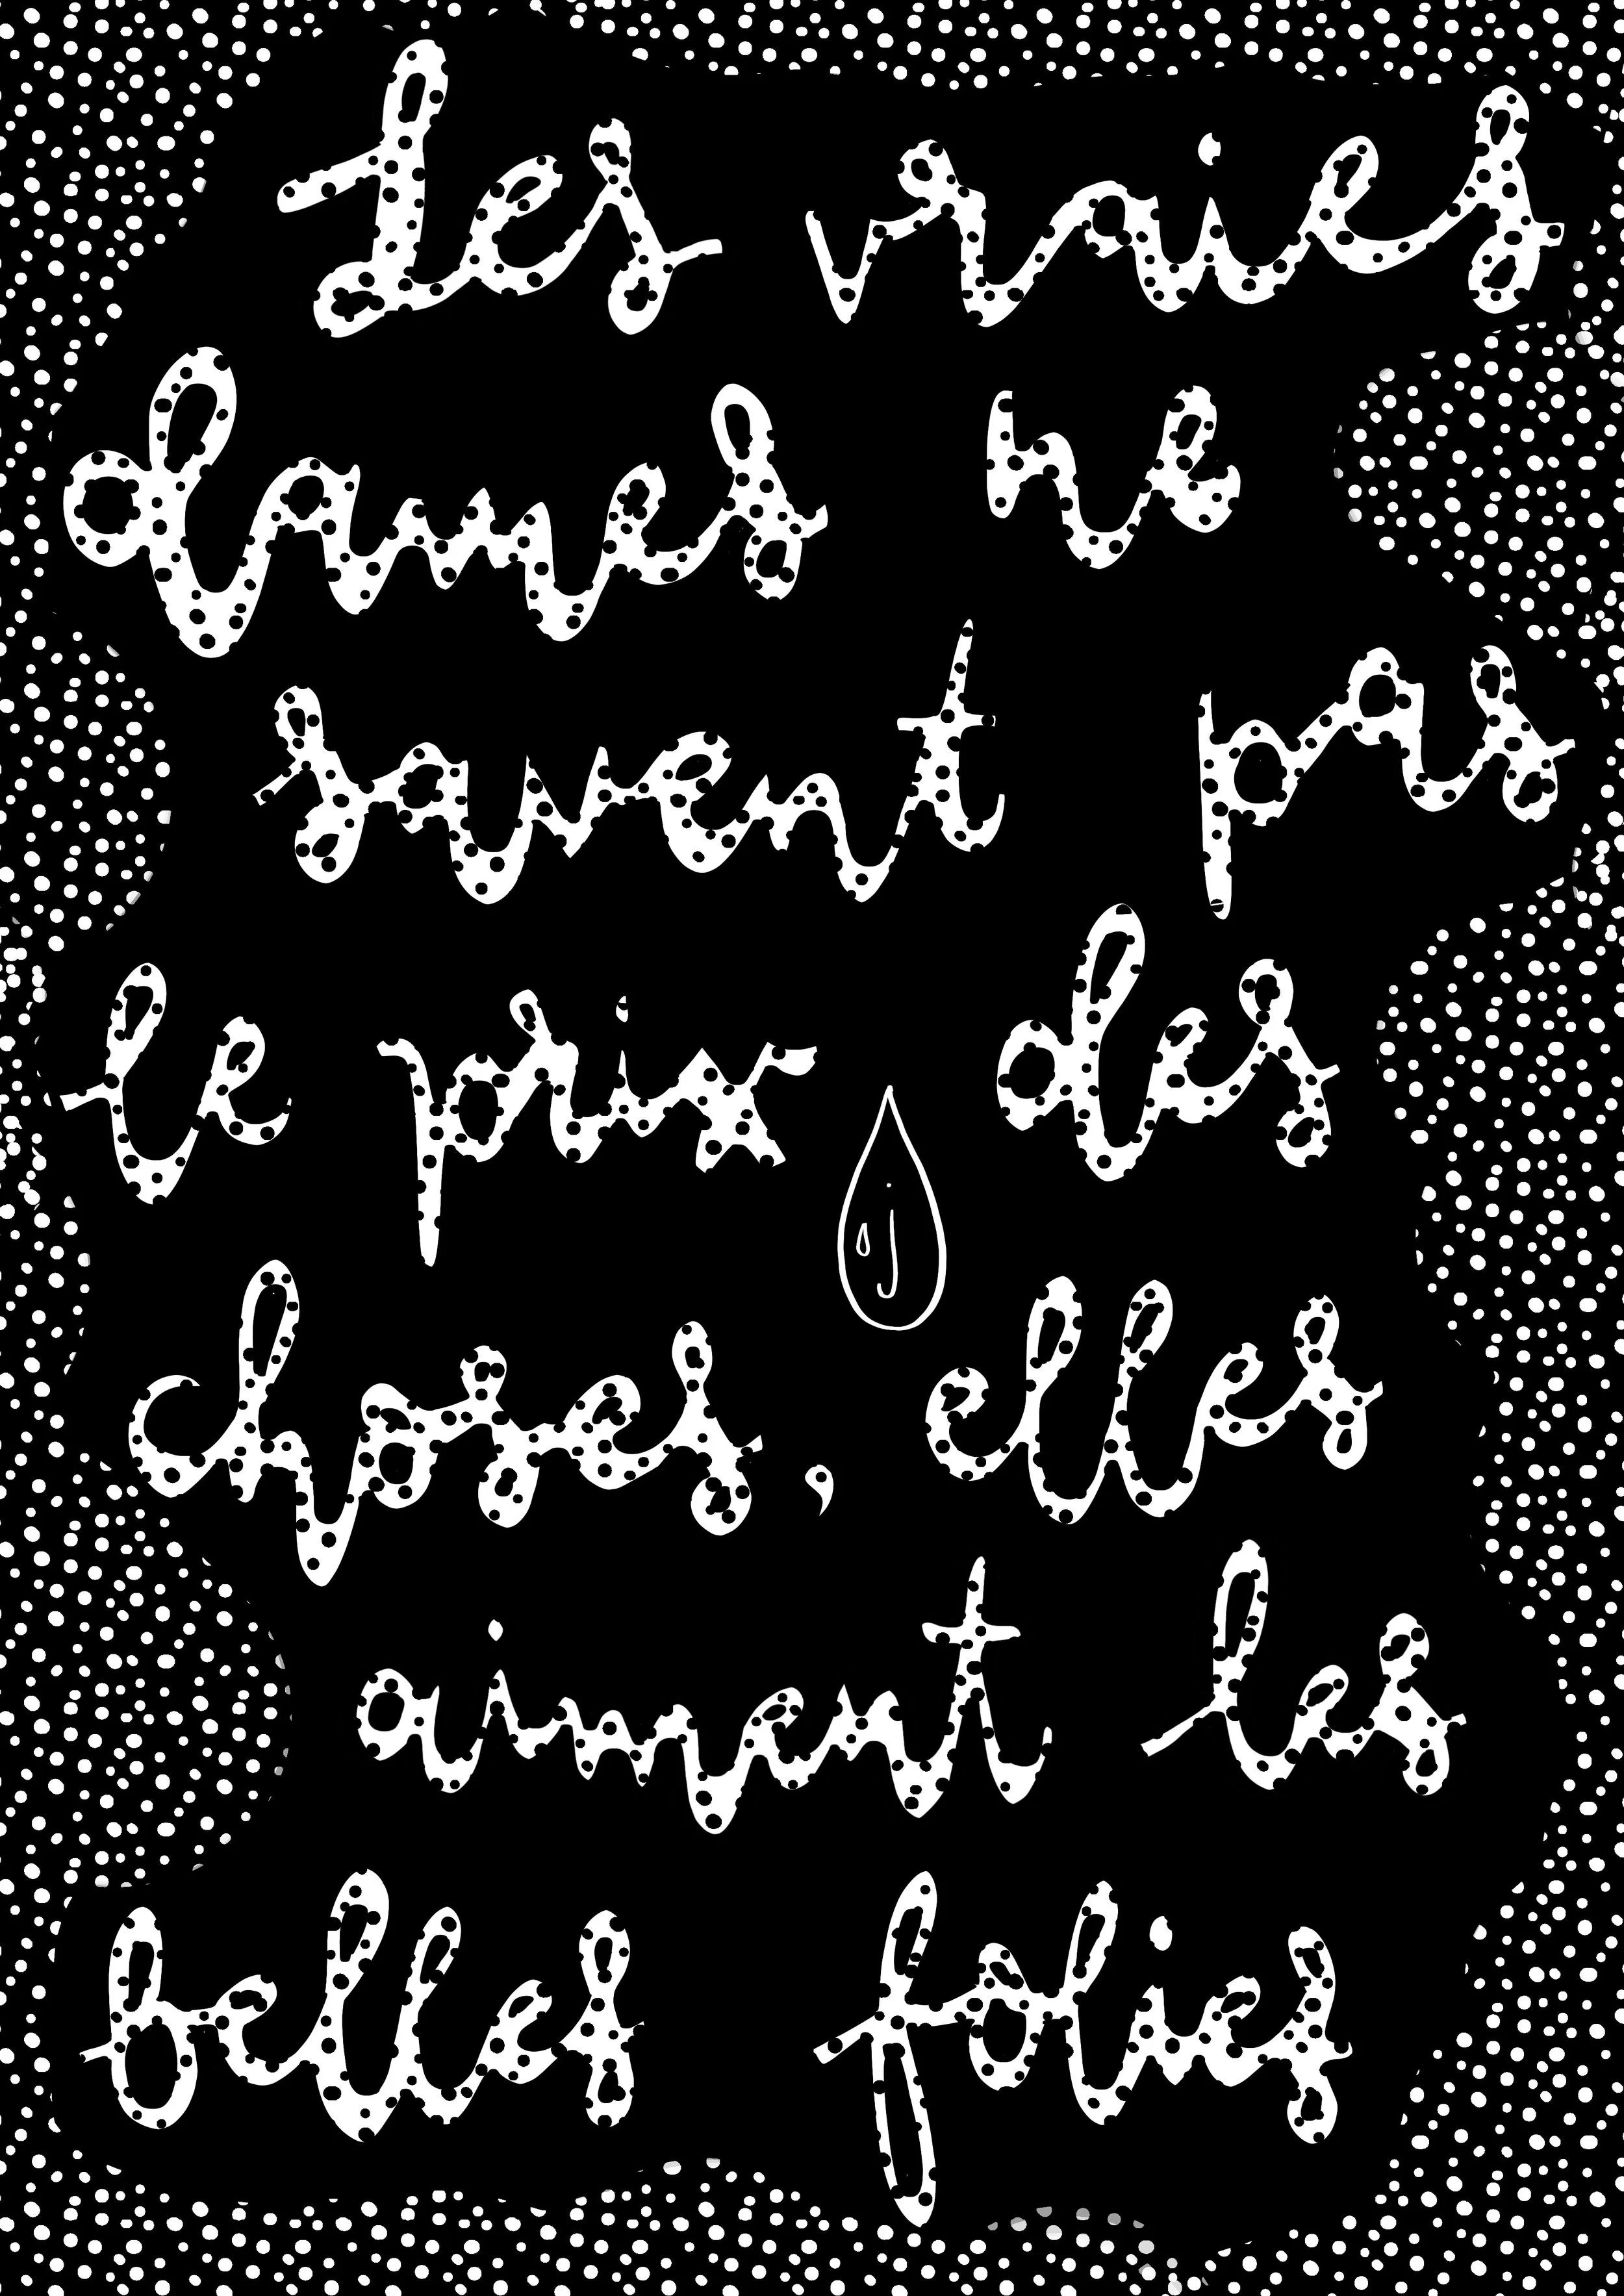 Les vraies
dames ne
savent pas
le prix des
choses, elles
aiment les
belles folies